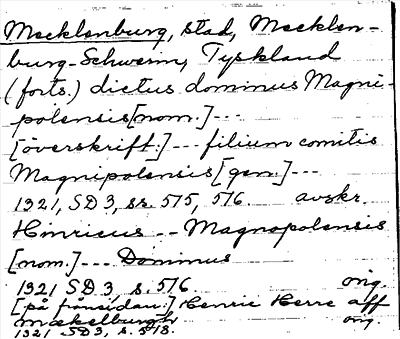 Mecklenburg, stad, Mecklen-
burg-Schwerin, Tyskland
(forts.) dictus dominus Magni-
polensis [nom.] ---
[överskrift:] --- filium comitis
Magnipolensis [gen.] ---
1321, SD 3, s. 515, 516 avskr.
Hinricus -- Magnopolensis
[nom.] --- Dominus
1321 SD 3, s. 516 orig.
[på frånsidan:] Henric Herre aff
mækelburgh orig.
1321 SD3, s. 518.